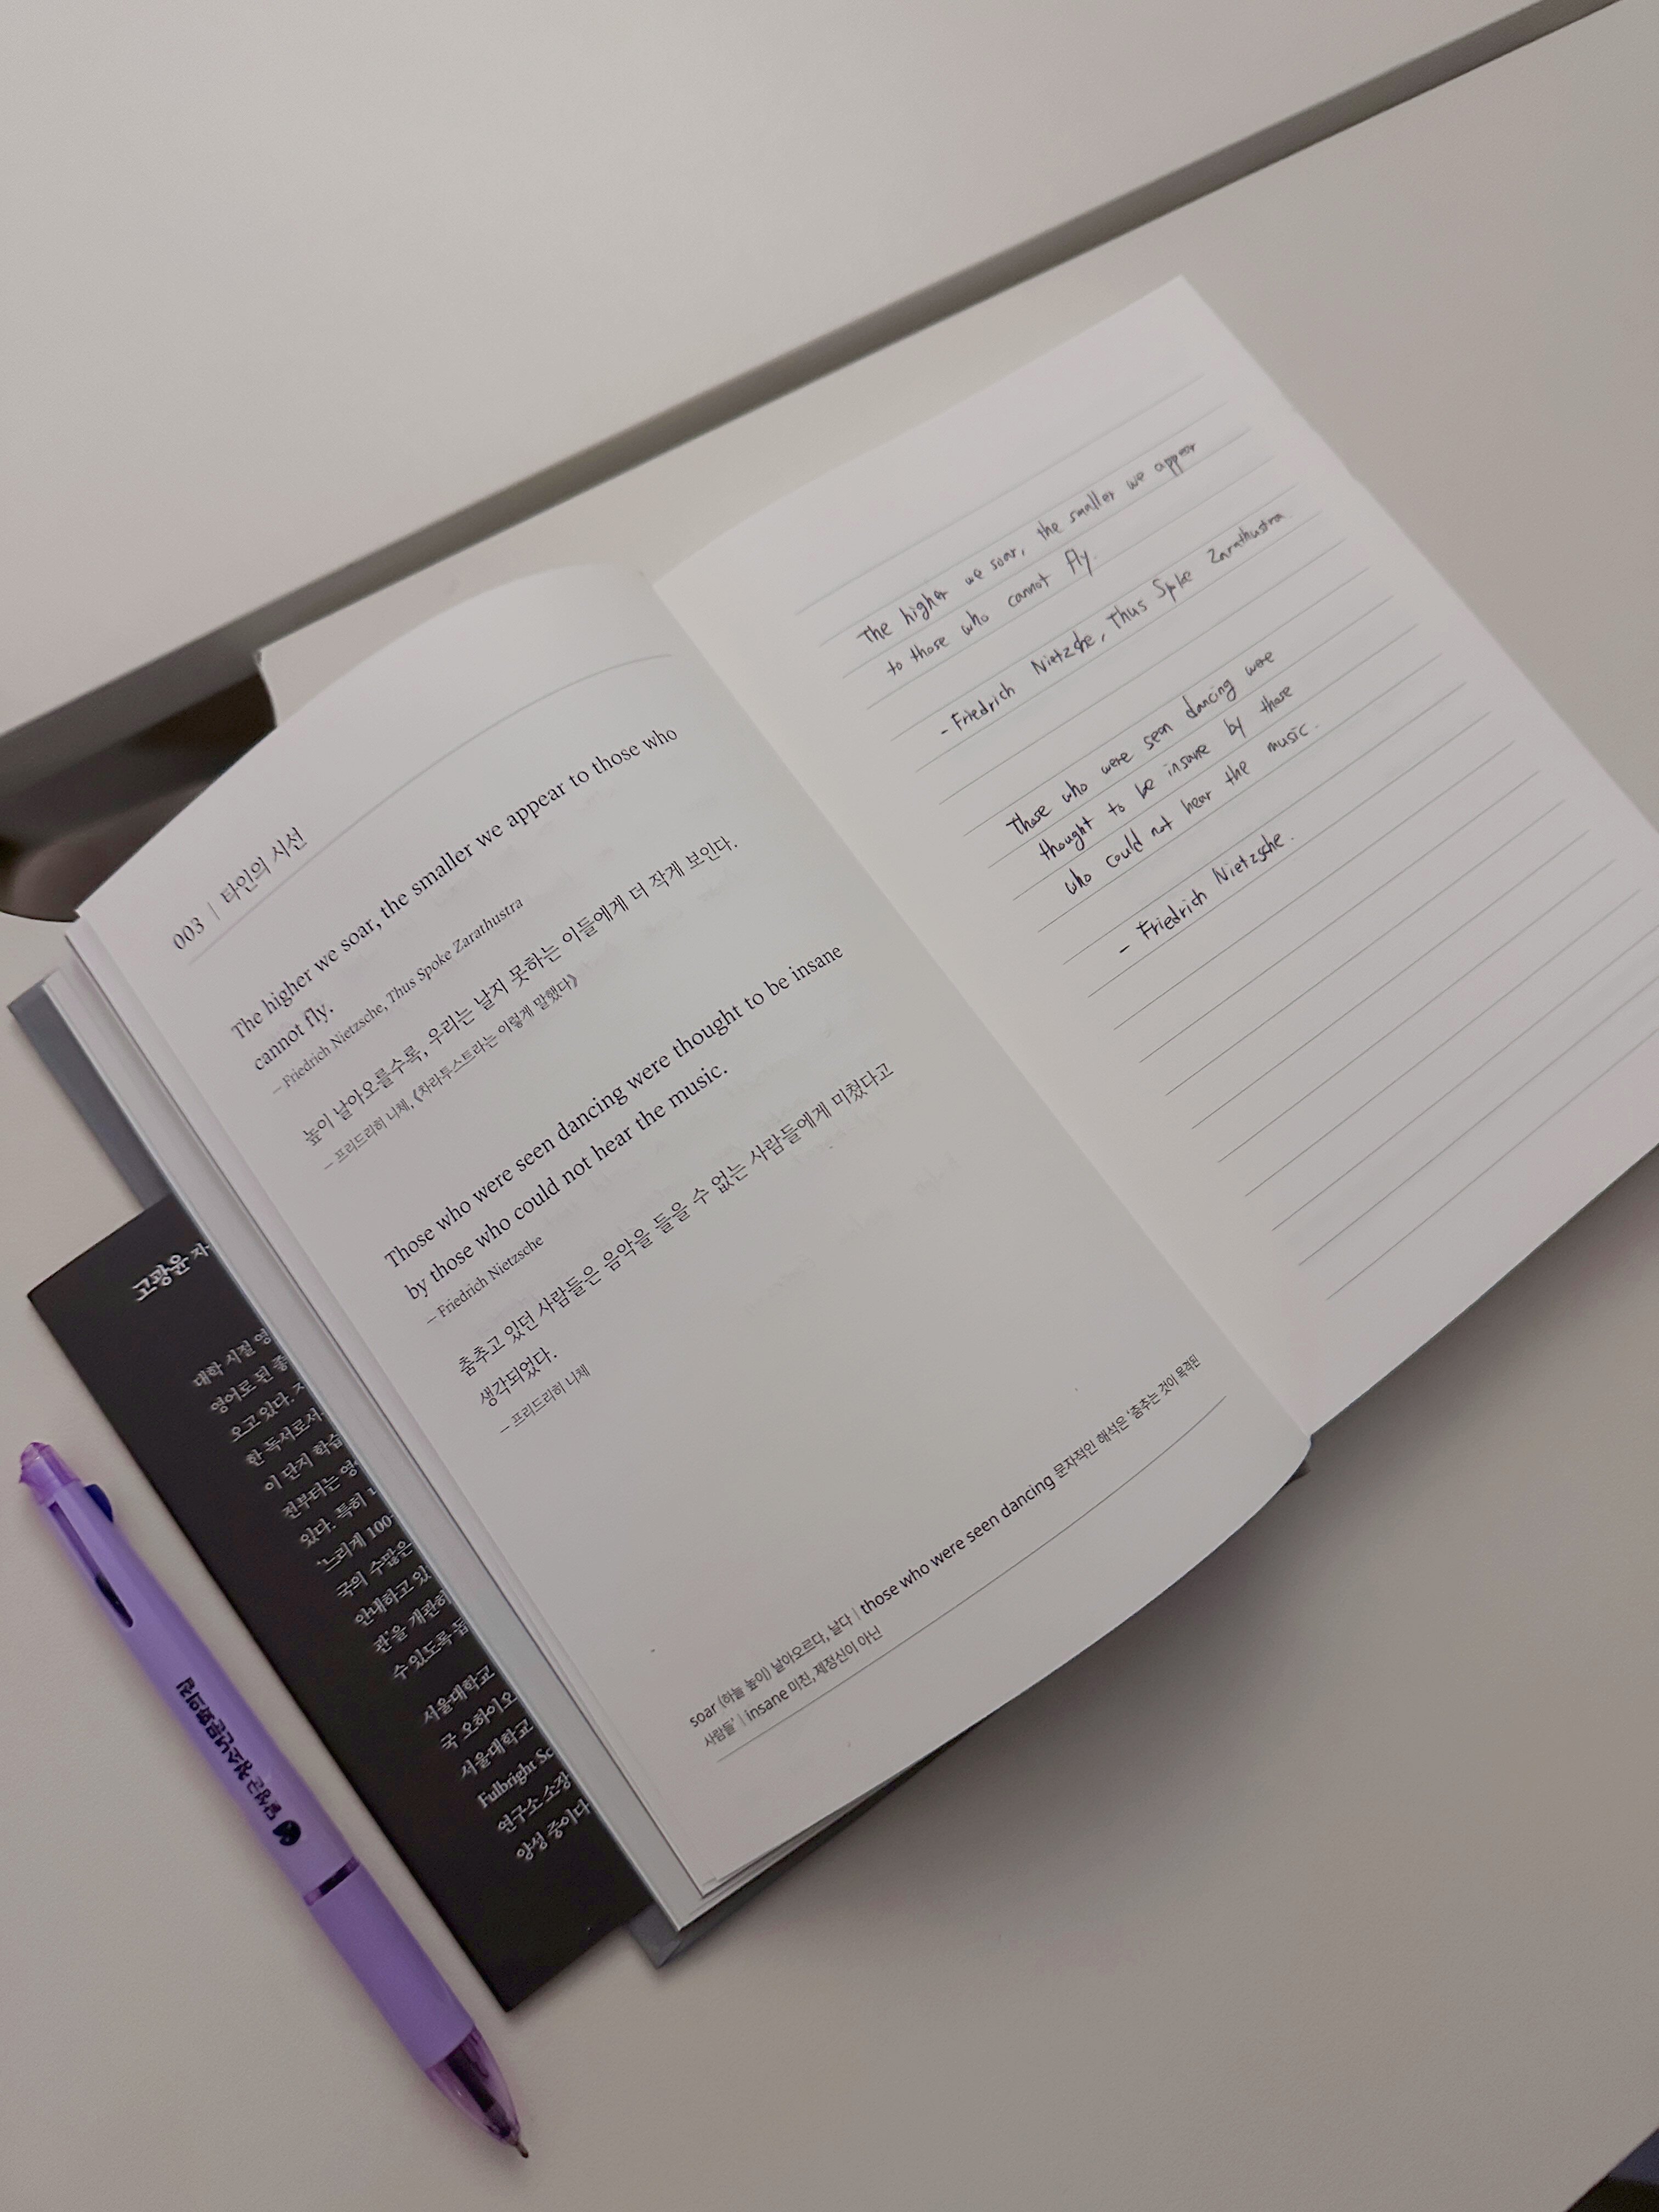 003 | 타인의 시선
The higher we soar, the smaller we appear to those who
cannot fly.
– Friedrich Nietzsche, Thus Spoke Zarathustra
높이 날아오를수록, 우리는 날지 못하는 이들에게 더 작게 보인다.
– 프리드리히 니체, 《차라투스트라는 이렇게 말했다》
Those who were seen dancing were thought to be insane
by those who could not hear the music.
– Friedrich Nietzsche
춤추고 있던 사람들은 음악을 들을 수 없는 사람들에게 미쳤다고
생각되었다.
– 프리드리히 니체
soar (하늘 높이) 날아오르다, 날다 | those who were seen dancing 문자적인 해석은 '춤추는 것이 목격된
사람들' | insane 미친, 제정신이 아닌
The higher we soar, the smaller we appear
to those who cannot fly.
- Friedrich Nietzsche, Thus Spoke Zarathustra.
Those who were seen dancing were
thought to be insane by those
who could not hear the music.
- Friedrich Nietzsche.
고광윤 자
대학 시절 영
영어로 된 좋
오고 있다.
한 독서로서
이 단지 학습
전부터는 영
있다. 특히
'느리게 100
국의 수많은
안내하고 있
관'을 개관하
수 있도록 돕
서울대학교
국 오하이오
서울대학교
Fulbright Sc
연구소 소장
양성 중이다